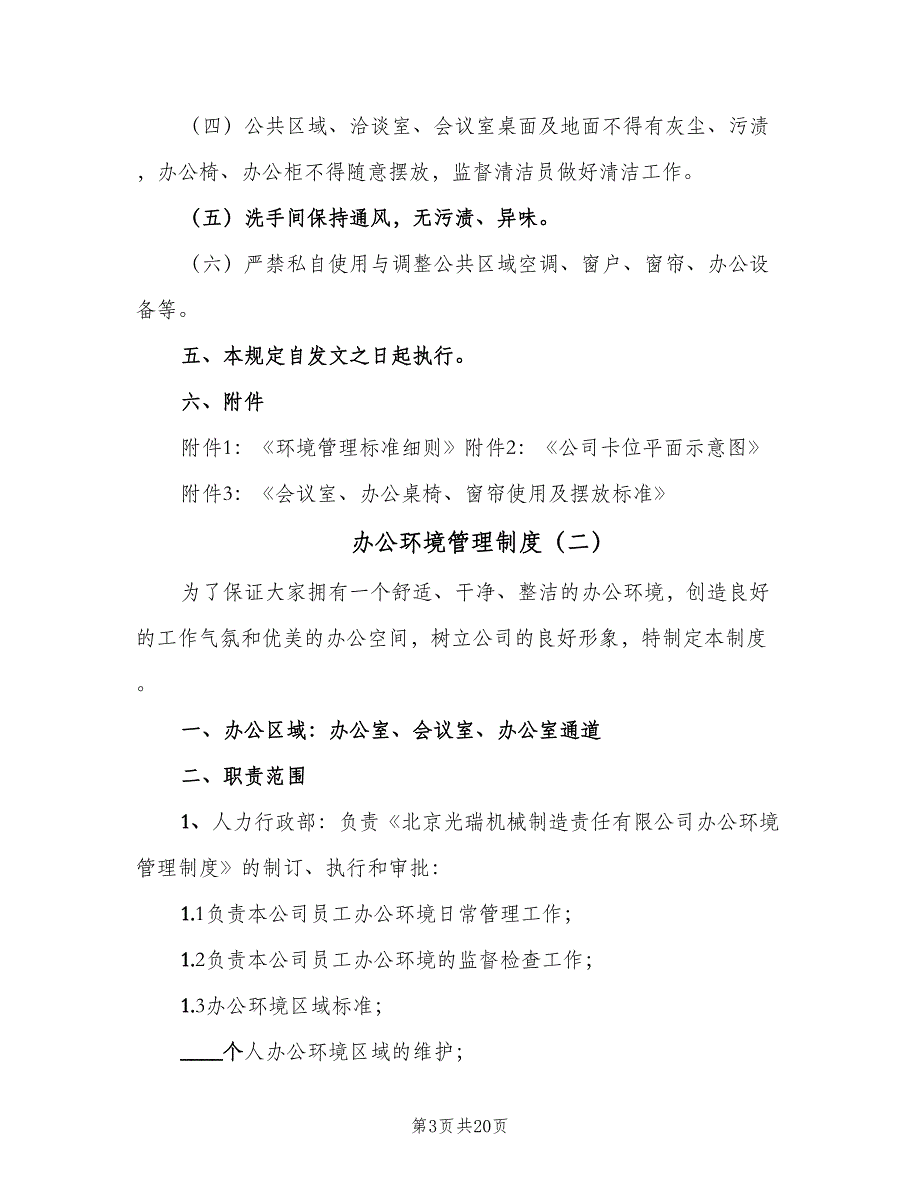 （四）公共区域、洽谈室、会议室桌面及地面不得有灰尘、污渍
，办公椅、办公柜不得随意摆放，监督清洁员做好清洁工作。
（五）洗手间保持通风，无污渍、异味。
（六）严禁私自使用与调整公共区域空调、窗户、窗帘、办公设
备等。
五、本规定自发文之日起执行。
六、附件
附件1：《环境管理标准细则》附件2：《公司卡位平面示意图》
附件3：《会议室、办公桌椅、窗帘使用及摆放标准》
办公环境管理制度（二）
为了保证大家拥有一个舒适、干净、整洁的办公环境，创造良好
的工作气氛和优美的办公空间，树立公司的良好形象，特制定本制度
。
一、办公区域：办公室、会议室、办公室通道
二、职责范围
1、人力行政部：负责《北京光瑞机械制造责任有限公司办公环境
管理制度》的制订、执行和审批：
1.1负责本公司员工办公环境日常管理工作；
1.2负责本公司员工办公环境的监督检查工作；
1.3办公环境区域标准；
____个人办公环境区域的维护；
第3页共20页